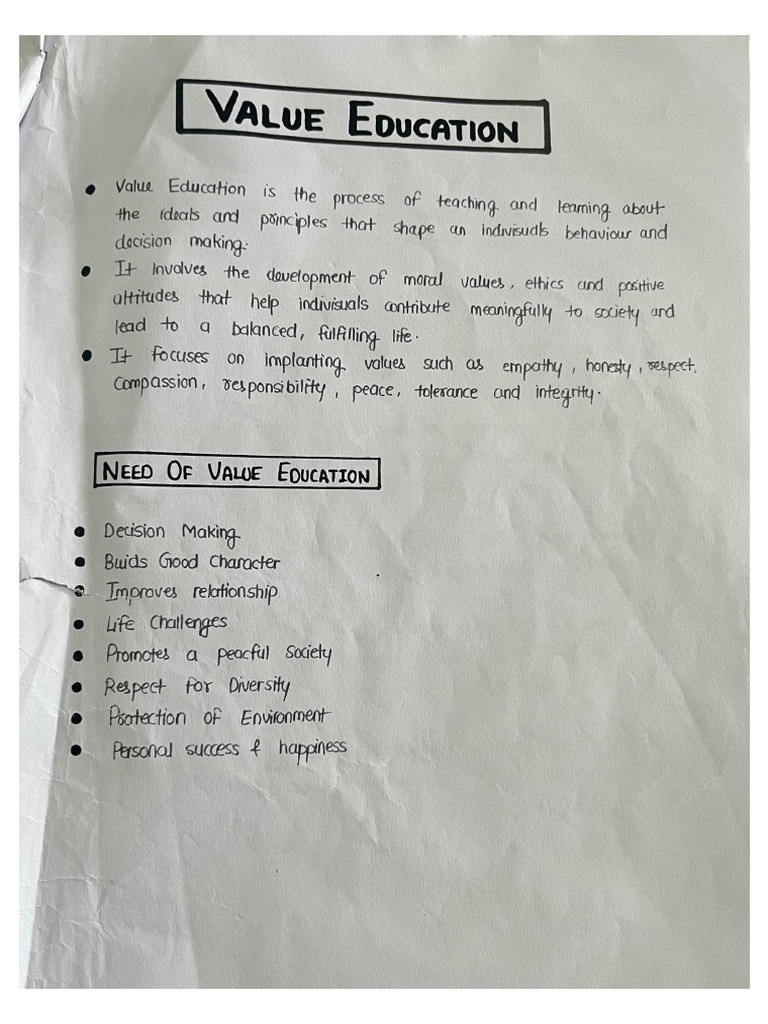 VALUE EDUCATION
• Value Education is the process of teaching and learning about
the ideals and principles that shape an indivisuals behaviour and
decision making.
• It involves the development of moral values, ethics and positive
altitudes that help indivisuals contribute meaningfully to society and
lead to a balanced, fulfilling life.
• It focuses on implanting values such as empathy, honesty, respect,
compassion, responsibility, peace, tolerance and integrity.
NEED OF VALUE EDUCATION
• Decision Making
• Buids Good Character
• Improves relationship
• Life Challenges
• Promotes a peacful Society
• Respect for Diversity
• Protection of Environment
• Personal success & happiness